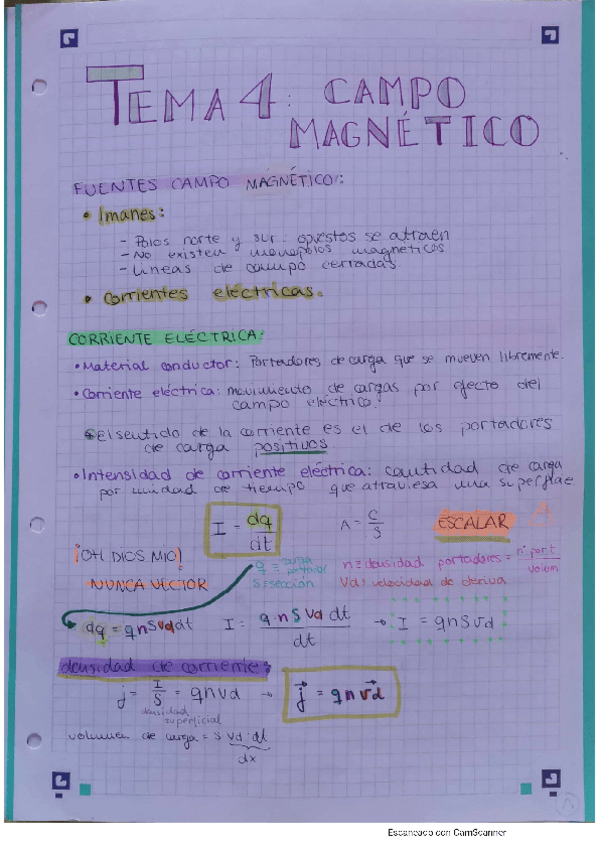 TEMA 4: CAMPO
MAGNÉTICO
FUENTES CAMPO MAGNÉTICO:
• Imanes:
- Polos norte y sur: opuestos se atraen
- No existen monopolos magnéticos
- Líneas de campo cerradas
• Corrientes eléctricas.
CORRIENTE ELÉCTRICA:
• Material conductor: Portadores de carga que se mueven libremente.
• Corriente eléctrica: movimiento de cargas por efecto del
campo eléctrico.
El sentido de la corriente es el de los portadores
de carga positivos
• Intensidad de corriente eléctrica: cantidad de carga
por unidad de tiempo que atraviesa una superficie
I = dq/dt A = C/S ESCALAR
¡OH DIOS MIO!
NUNCA VECTOR
q ≡ carga portador
S ≡ sección
n ≡ densidad portadores = nº port/volum
Vd: velocidad de deriva
dq = qnSvddt I = q·nSVd dt/dt → I = qnSvd
densidad de corriente:
j = I/S = qnvd → j⃗ = qnv⃗d
densidad
superficial
volumen de carga = S vd·dt
dx
Escaneado con CamScanner